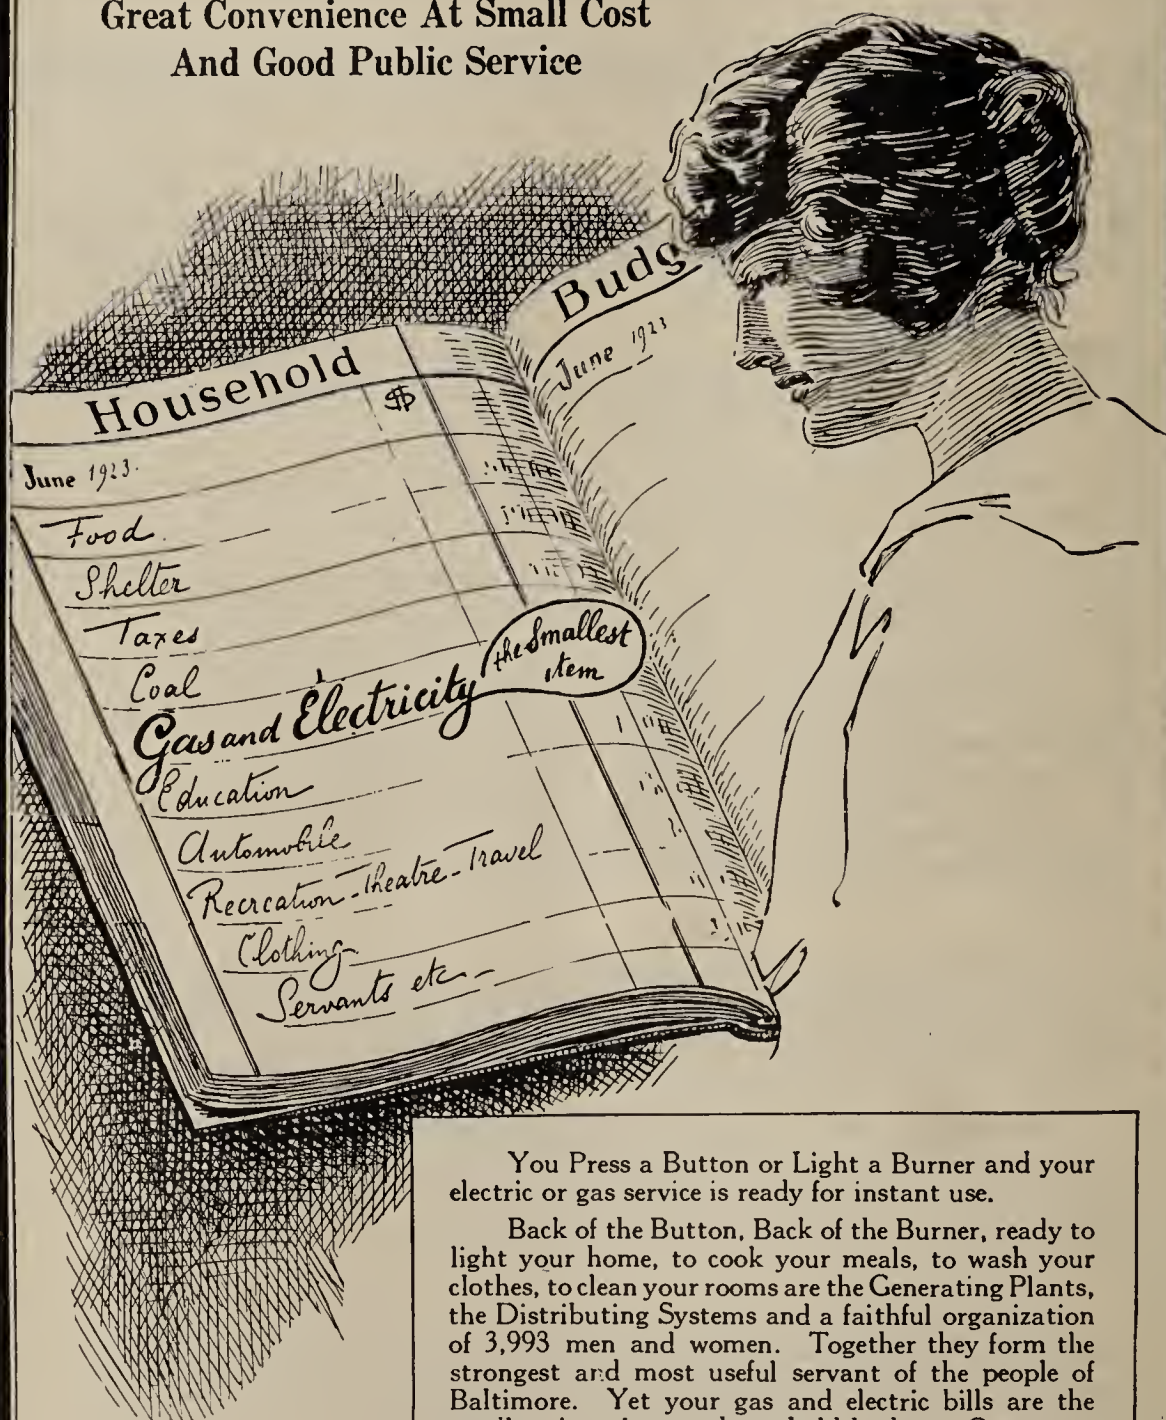 Great Convenience At Small Cost
And Good Public Service
Household
$
June 1923.
Food.
Shelter
Taxes
Coal
Gas and Electricity
the Smallest
item
Education
Automobile
Recreation-Theatre-Travel
Clothing
Servants etc
Budg
June 1923
You Press a Button or Light a Burner and your
electric or gas service is ready for instant use.
Back of the Button, Back of the Burner, ready to
light your home, to cook your meals, to wash your
clothes, to clean your rooms are the Generating Plants,
the Distributing Systems and a faithful organization
of 3,993 men and women. Together they form the
strongest and most useful servant of the people of
Baltimore. Yet your gas and electric bills are the